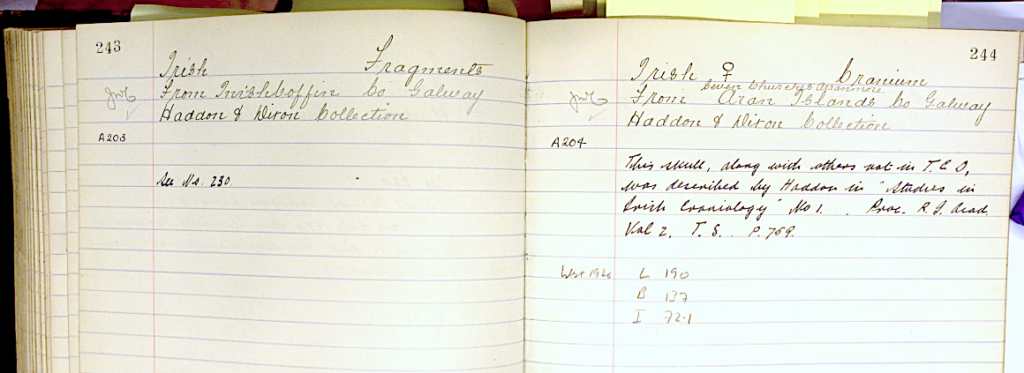 243
Irish Fragments
From Inishboffin Co Galway
Haddon & Dixon Collection
A203
See No. 230.
244
Irish ♀ Cranium
Seven Churches Aranmore
From Aran Islands Co Galway
Haddon & Dixon Collection
A204
This skull, along with others not in T.C.D,
was described by Haddon in "Studies in
Irish Craniology" No 1. Proc. R. I. Acad.
Vol 2. T. S. P. 759.
1926 L 190
B 137
I 72.1